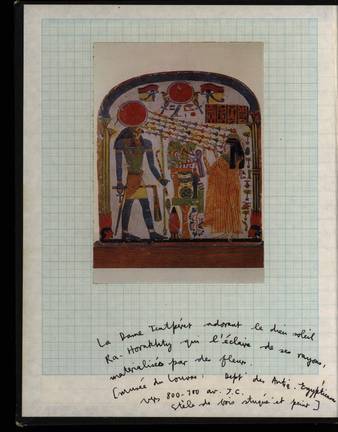 La Dame Tentpéret adorant le dieu soleil
Ra-Horakhty qui l'éclaire de ses rayons,
materialisés par des fleurs
[musée du Louvre. Dept des Antiq. Egyptiennes
vers 800-700 av. J.C.
stèle de bois stuqué et peint]